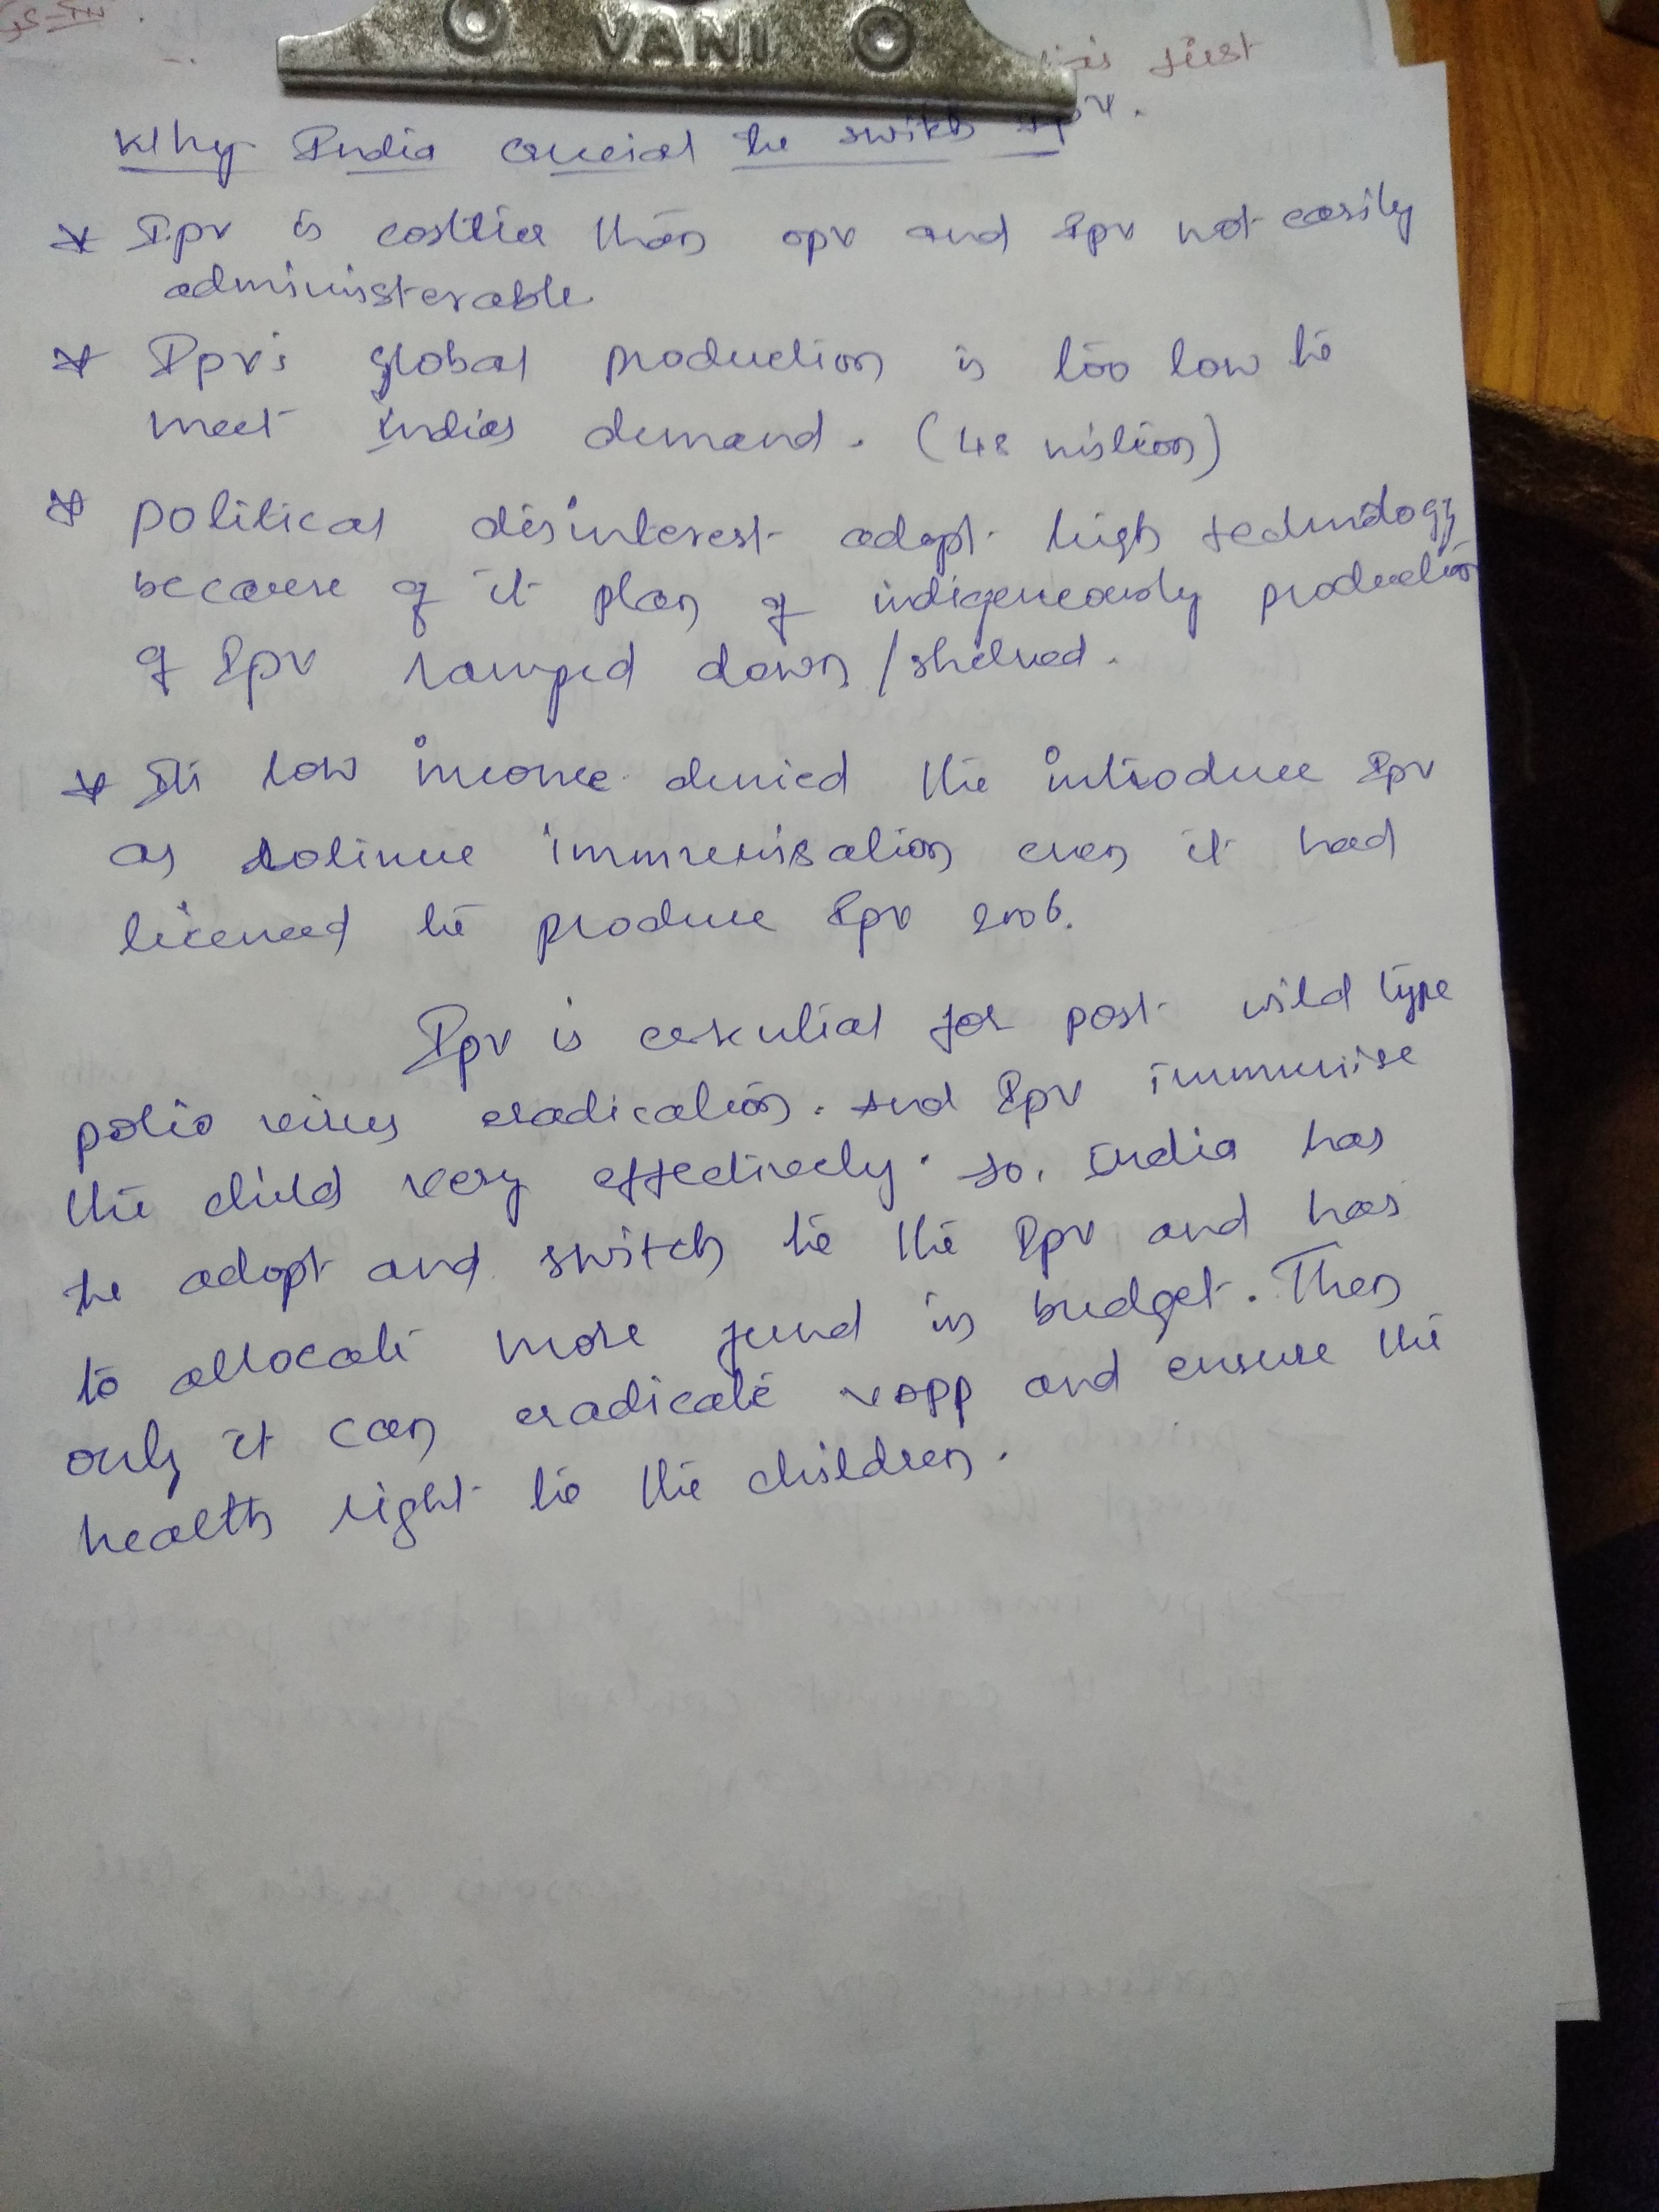 VANI
first
Why India crucial the switch IPV.
* Ipv is costlier than opv and Ipv not easily
administerable
* Ipv's global production is too low to
meet Indias demand. (48 million)
* political disinterest adopt high technology
because of it plan of indigeneously production
of Ipv ramped down/shelved.
* Its low income denied the introduce Ipv
as rotinue immunisation even it had
licenced to produce Ipv 2006.
Ipv is essential for post wild type
polio virus eradication. And Ipv immunise
the child very effectively. so, India has
to adopt and switch to the Ipv and has
to allocate more fund in budget. Then
only it can eradicate VAPP and ensure the
health right to the children.